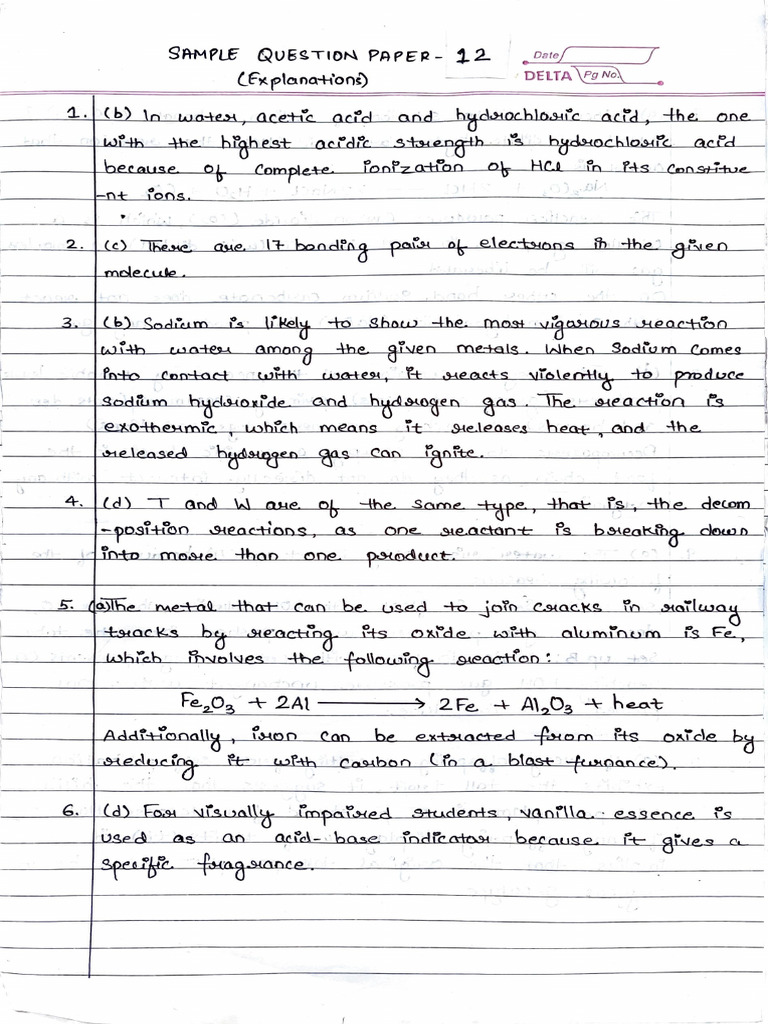 SAMPLE QUESTION PAPER - 12
(Explanations)
Date
DELTA Pg No.
1. (b) In water, acetic acid and hydrochloric acid, the one
with the highest acidic strength is hydrochloric acid
because of complete ionization of HCl in its constitue
-nt ions.
2. (c) There are 17 bonding pair of electrons in the given
molecule.
3. (b) Sodium is likely to show the most vigorous reaction
with water among the given metals. When Sodium comes
into contact with water, it reacts violently to produce
sodium hydroxide and hydrogen gas. The reaction is
exothermic, which means it releases heat, and the
released hydrogen gas can ignite.
4. (d) T and W are of the same type, that is, the decom
-position reactions, as one reactant is breaking down
into more than one product.
5. (a) The metal that can be used to join cracks in railway
tracks by reacting its oxide with aluminum is Fe,
which involves the following reaction:
Fe₂O₃ + 2Al ⟶ 2Fe + Al₂O₃ + heat
Additionally, iron can be extracted from its oxide by
reducing it with carbon (in a blast furnance).
6. (d) For visually impaired students, vanilla essence is
used as an acid-base indicator because it gives a
specific fragrance.